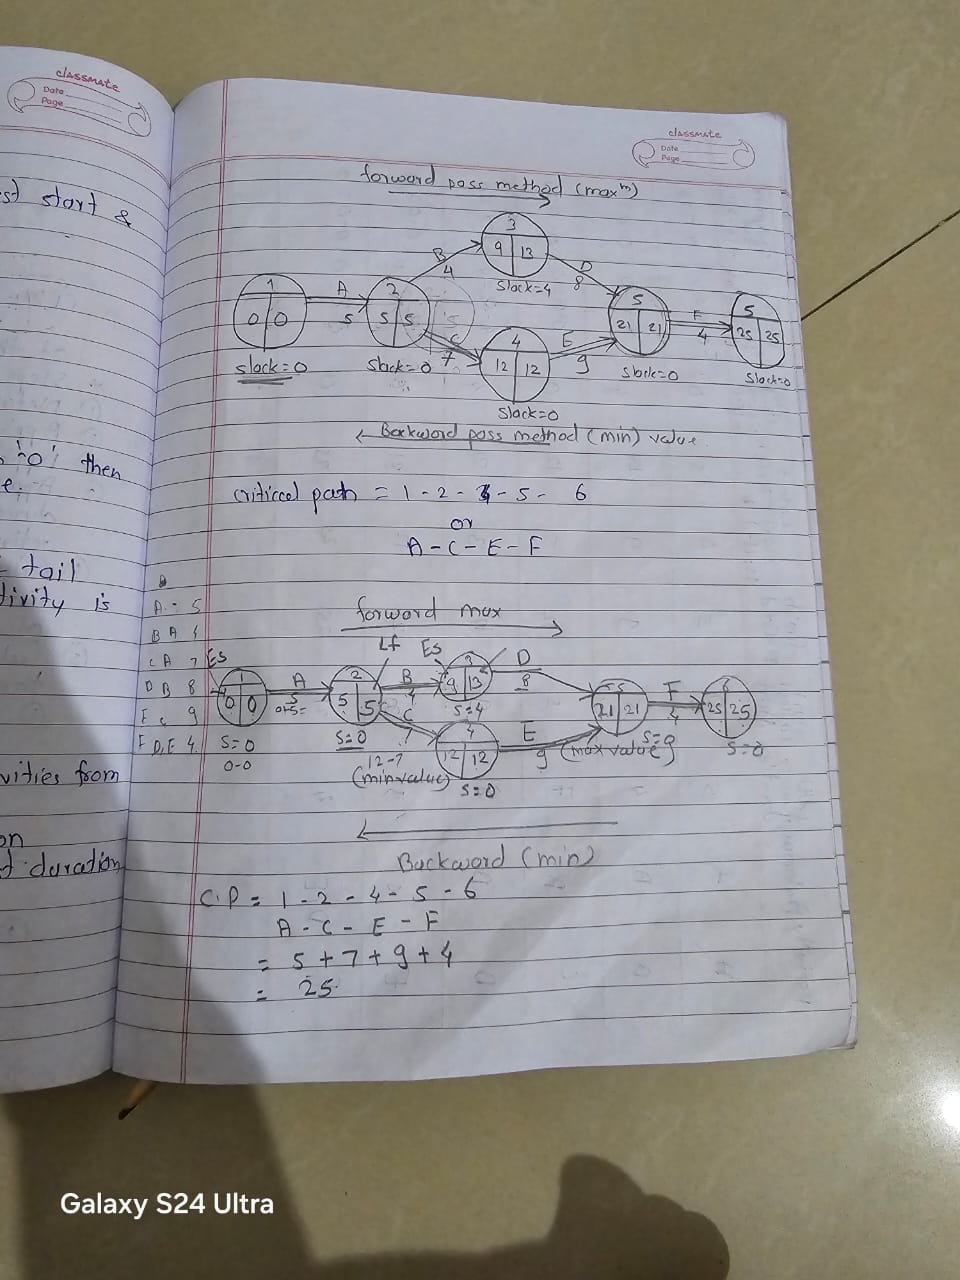 classmate
Date
Page
est start &
'o' then
e.
tail
tivity is
vities from
on
t duration
classmate
Date
Page
forward pass method (maxᵐ)
1
0 0
Slack=0
A
5
2
5 5
Slack=0
B
4
3
9 13
Slack=4
D
8
C
7
4
12 12
Slack=0
E
9
5
21 21
Slack=0
F
4
5
25 25
Slack=0
← Backword pass method (min) value
criticcal path = 1 - 2 - 4 - 5 - 6
or
A - C - E - F
A - 5
B A 4
C A 7
D B 8
E C 9
F D,E 4
forward max
ES
1
0 0
S=0
0-0
A
5
0+5=
Lf
2
5 5
S=0
12-7
(min value)
B
4
Es
3
9 13
S=4
D
8
C
7
4
12 12
S=0
E
9
(max value)
5
21 21
S=0
F
4
6
25 25
S=0
Backword (min)
C.P = 1 - 2 - 4 - 5 - 6
A - C - E - F
= 5 + 7 + 9 + 4
= 25
Galaxy S24 Ultra